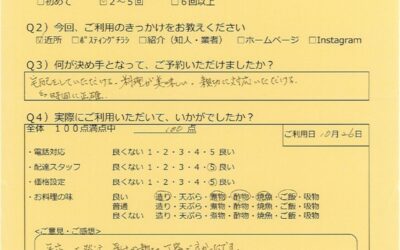 □初めて ☑2～5回 □6回以上
Q2）今回、ご利用のきっかけをお教えください
☑近所 □ポスティングチラシ □紹介（知人・業者） □ホームページ □Instagram
Q3）何が決め手となって、ご予約いただけましたか？
宅配をしていただける。料理が美味しい。親切に対応いただける。
時間に正確。
Q4）実際にご利用いただいて、いかがでしたか？
全体 100点満点中 100 点
ご利用日 10月26日
・電話対応 良くない 1・2・3・4・5 良い
・配達スタッフ 良くない 1・2・3・4・⑤ 良い
・価格設定 良くない 1・2・3・4・⑤ 良い
・お料理の味 良い 造り・天ぷら・煮物・酢物・焼魚・ご飯・吸物
普通 造り・天ぷら・煮物・酢物・焼魚・ご飯・吸物
良くない 造り・天ぷら・煮物・酢物・焼魚・ご飯・吸物
＜ご意見・ご感想＞